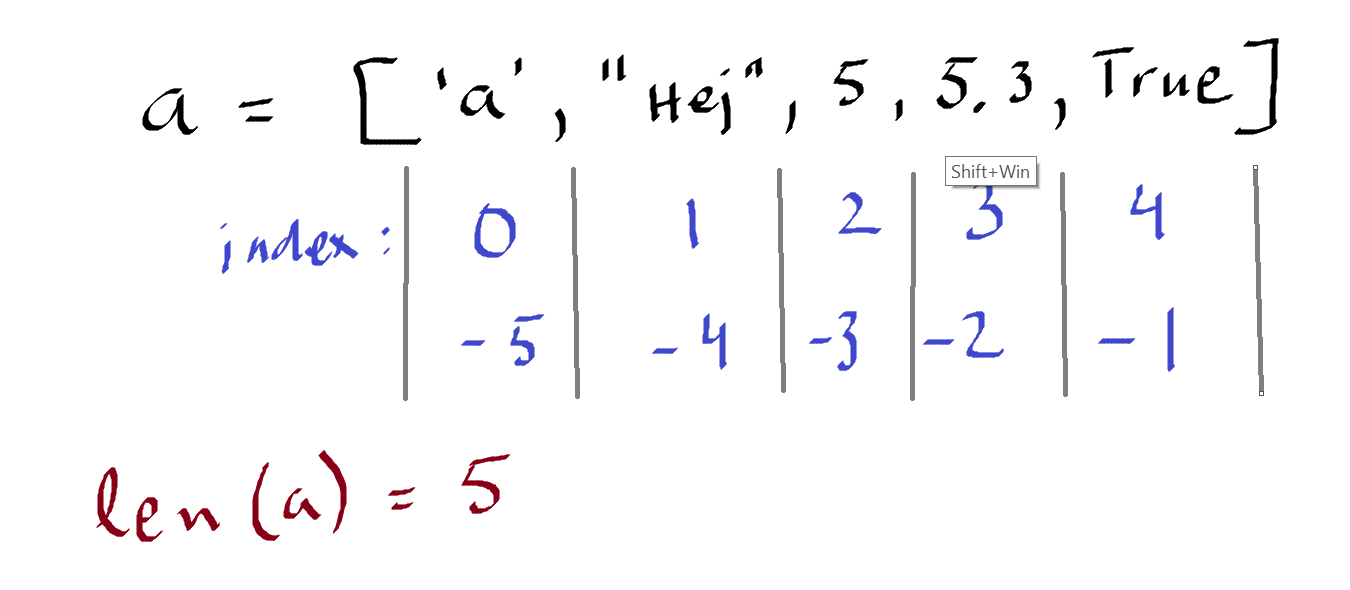 a = ['a', "Hej", 5, 5.3, True]
Shift+Win
index: 0 1 2 3 4
-5 -4 -3 -2 -1
len(a) = 5